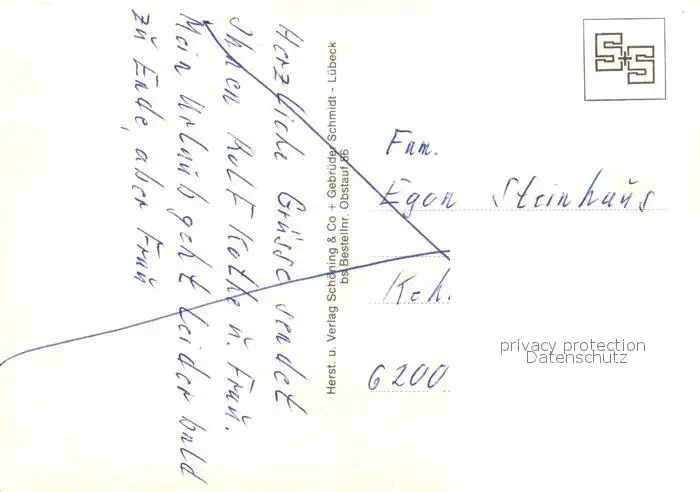 Herzliche Grüsse sendet
Ihnen Rolf Kothe u. Frau.
Mein Urlaub geht leider bald
zu Ende, aber Frau
Herst. u. Verlag Schöning & Co + Gebrüder Schmidt - Lübeck
bs Bestellnr. Obstauf 56
S+S
Fam.
Egon Steinhaus
Keh.
6200
privacy protection
Datenschutz